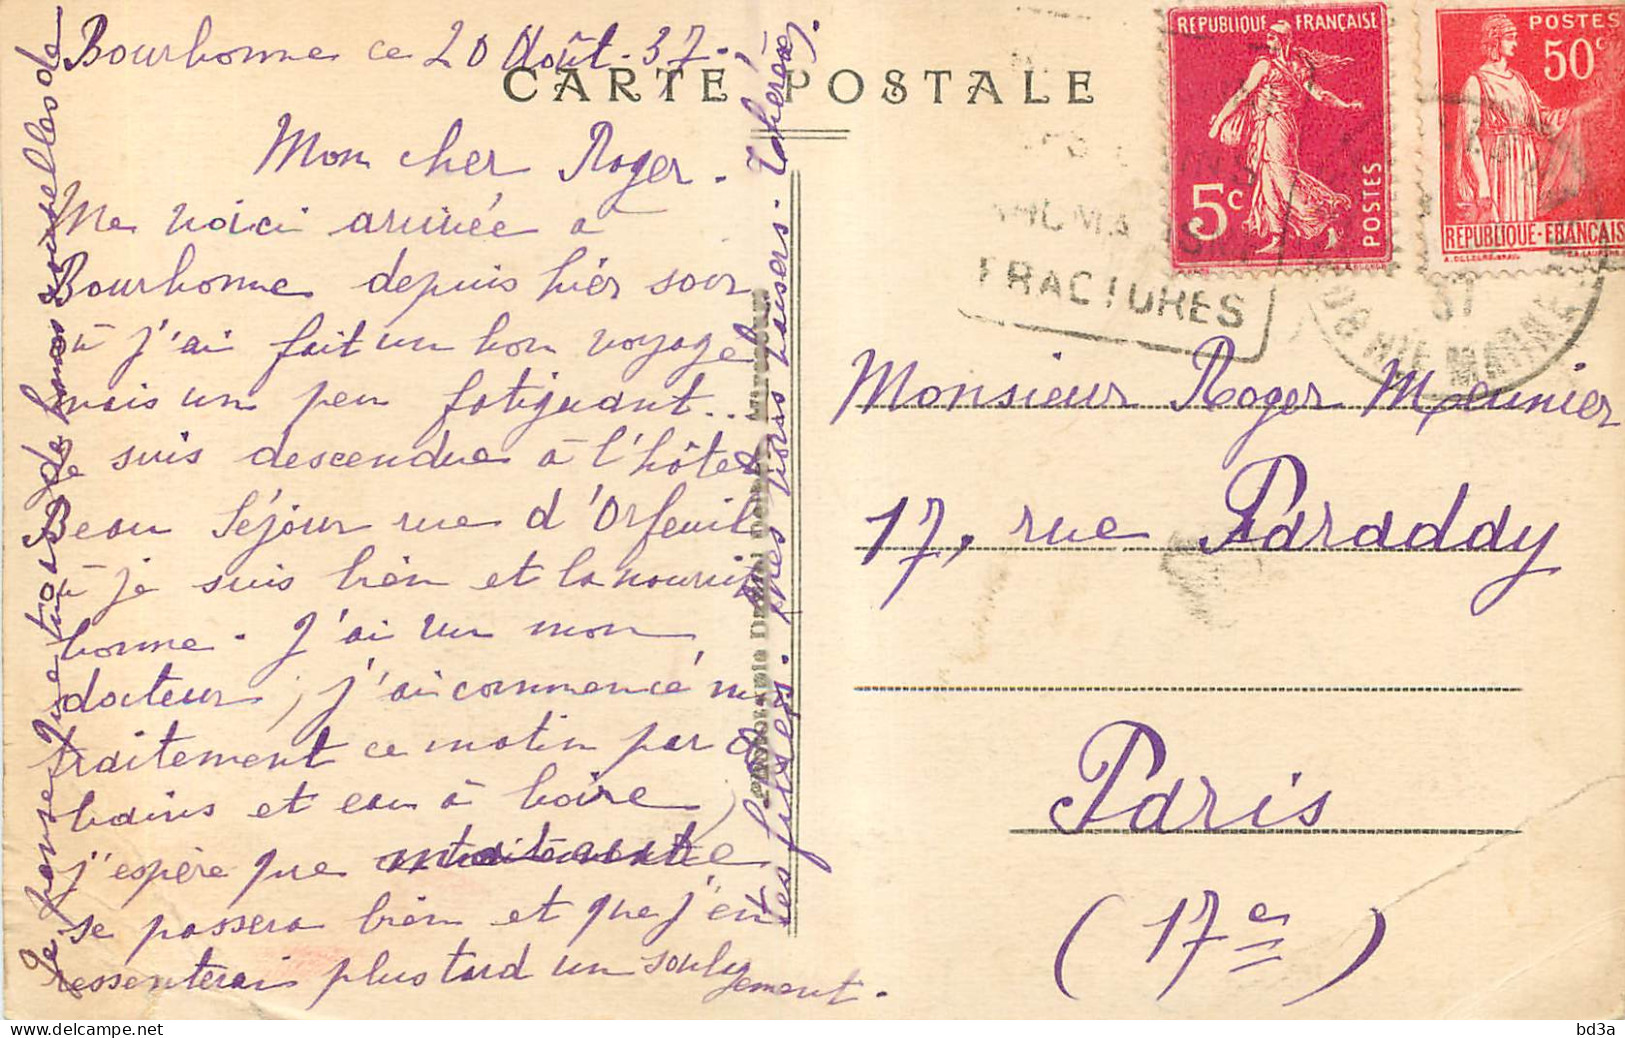 Bourbonne ce 20 Août. 37.
CARTE POSTALE
Mon cher Roger.
Me voici arrivée à
Bourbonne depuis hier soir
où j'ai fait un bon voyage
mais un peu fatiguant..
Je suis descendue à l'hôtel
Beau Séjour rue d'Orfeuil
où je suis bien et la nourrit
bonne. J'ai vu mon
docteur, j'ai commencé mon
traitement ce matin par
bains et eau à boire,
j'espère que
se passera bien et que j'en
ressentirai plus tard un soulagement.
Je pense que tous de bonnes nouvelles de
tes frères. Mes bons baisers. Thérèse.
REPUBLIQUE FRANÇAISE
5c
POSTES
POSTES
50c
REPUBLIQUE-FRANÇAISE
FRACTURES
37
HTE MARNE
Monsieur Roger Meunier
17, rue Faradday
Paris
(17e)
bd3a
delcampe.net